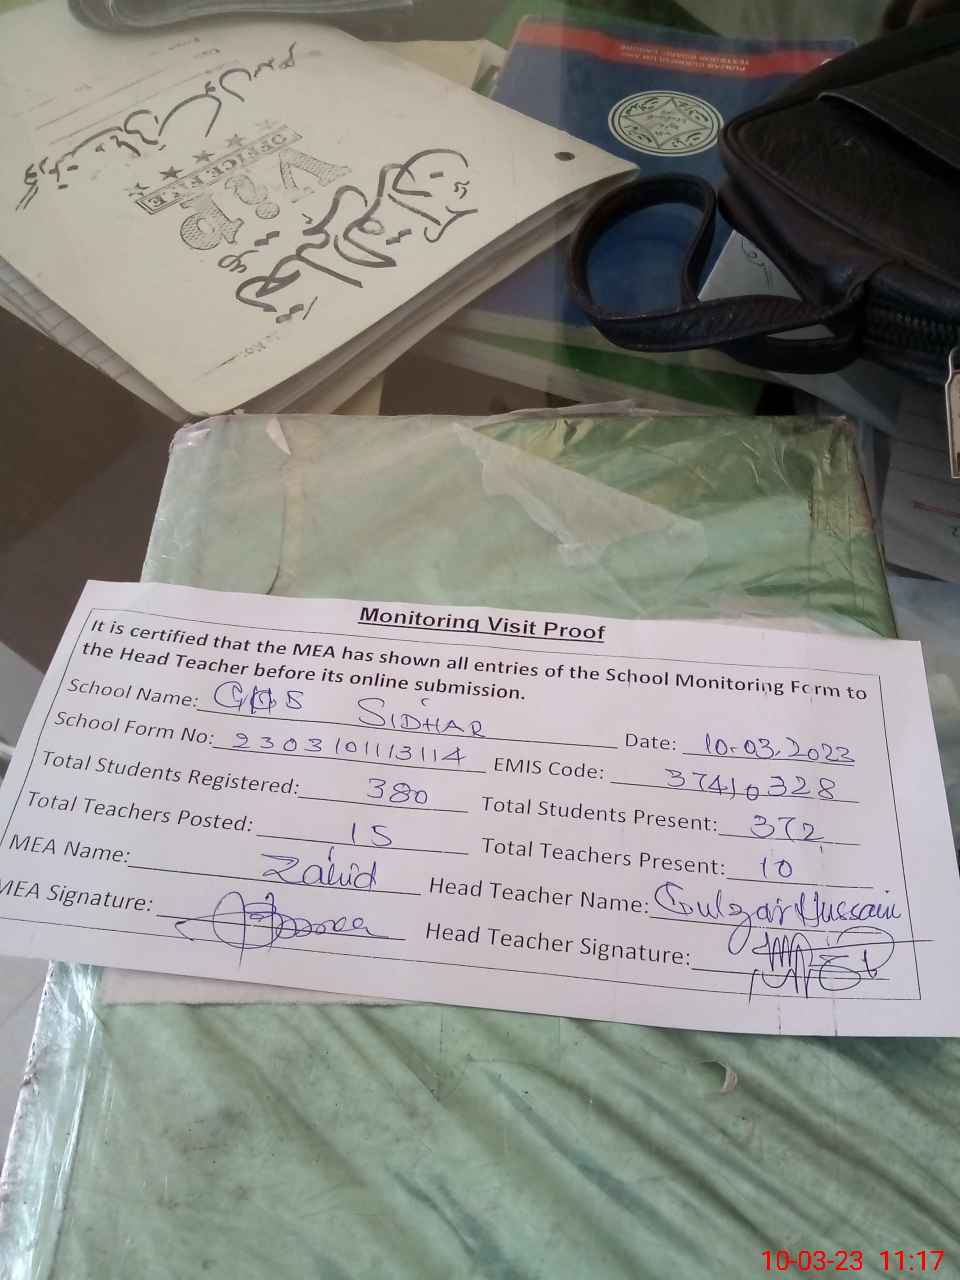 PUNJAB CURRICULUM AND
TEXTBOOK BOARD, LAHORE
OFFICE FILE
V.I.P
Monitoring Visit Proof
It is certified that the MEA has shown all entries of the School Monitoring Form to
the Head Teacher before its online submission.
School Name: GHS SIDHAR Date: 10.03.2023
School Form No: 2303101113114 EMIS Code: 37410328
Total Students Registered: 380 Total Students Present: 372
Total Teachers Posted: 15 Total Teachers Present: 10
MEA Name: Zahid Head Teacher Name: Gulzar Hussain
MEA Signature: Head Teacher Signature:
10-03-23 11:17